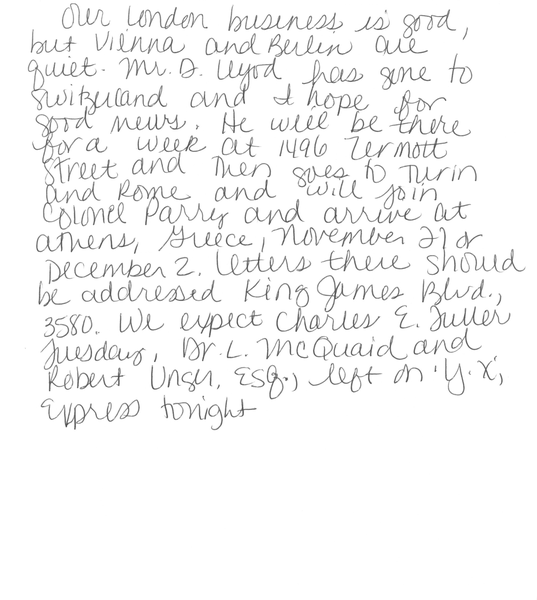 Our London business is good,
but Vienna and Berlin are
quiet. Mr. D. Lloyd has gone to
Switzerland and I hope for
good news. He will be there
for a week at 1496 Zermott
Street and then goes to Turin
and Rome and will join
Colonel Parry and arrive at
Athens, Greece, November 27 or
December 2. Letters there should
be addressed King James Blvd.,
3580. We expect Charles E. Fuller
Tuesday, Dr. L. McQuaid and
Robert Unger, Esq., left on 'Y.X,
Express tonight